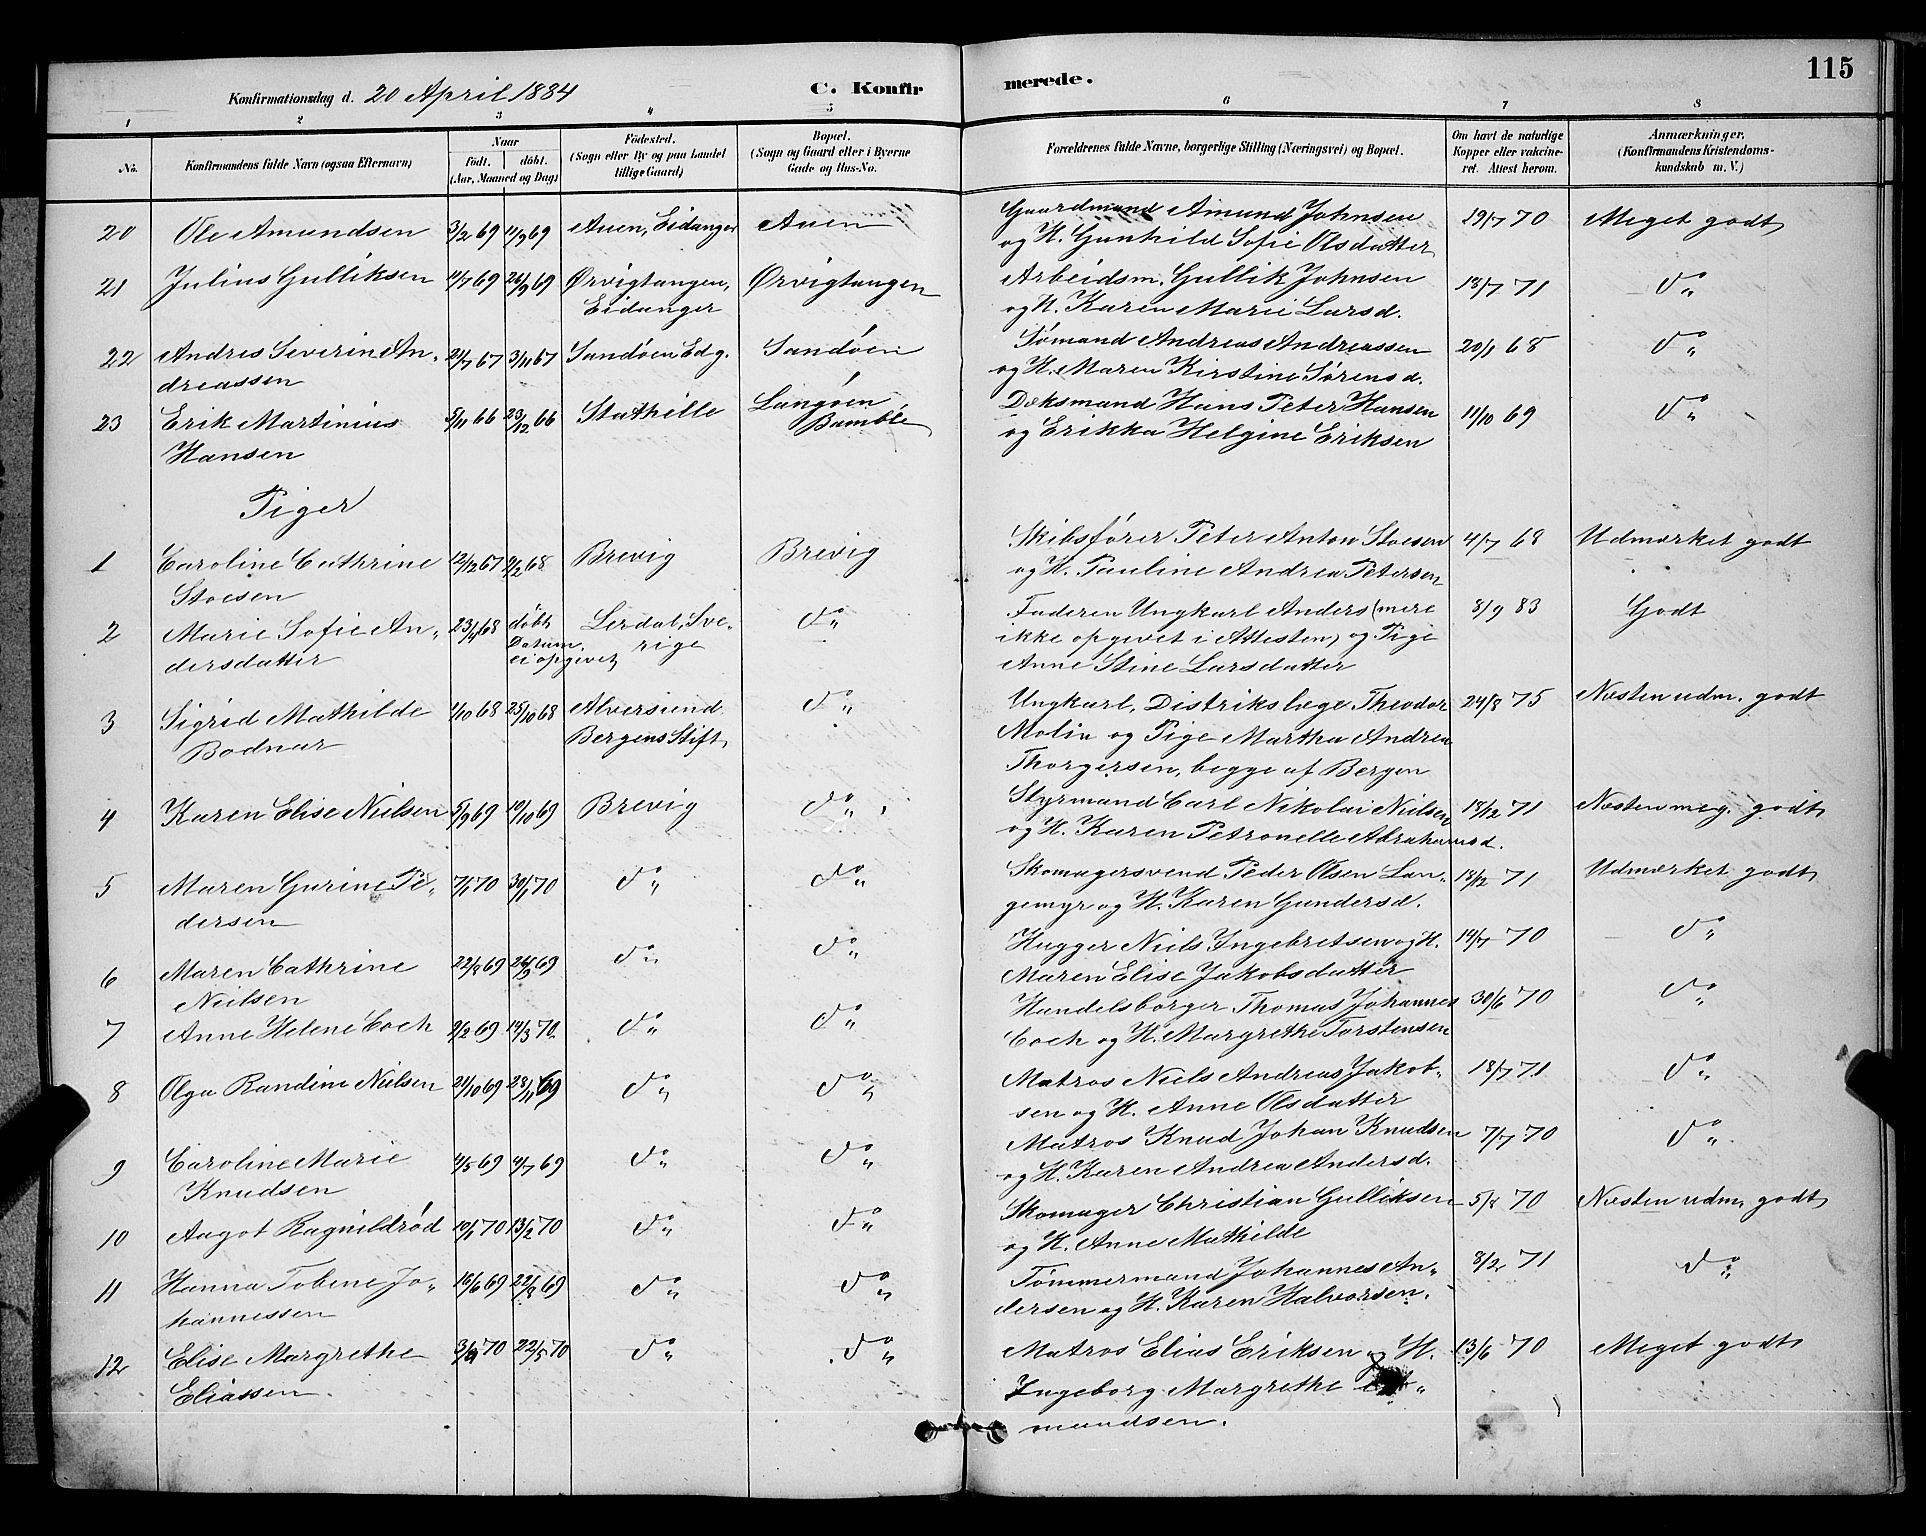 115
Konfirmationsdag d. 20 April 1884 C. Konfirmerede.
1 2 3 4 5 6 7 8
No. Konfirmandens fulde Navn (ogsaa Efternavn) Naar födt. döbt. (Aar, Maaned og Dag) Födested. (Sogn eller By og paa Landet tillige Gaard) Bopæl. (Sogn og Gaard eller i Byerne Gade og Hus-No. Forældrenes fulde Navne, borgerlige Stilling (Næringsvei) og Bopæl. Om havt de naturlige Kopper eller vakcineret. Attest herom. Anmærkninger. (Konfirmandens Kristendomskundskab m. V.)
20 Ole Amundsen 3/2 69 11/9 69 Auen, Eidanger Auen Gaardmand Amund Johnsen 19/7 70 Meget godt
og H. Gunhild Sofie Olsdatter
21 Julius Gulliksen 11/7 69 26/9 69 Ørvigtangen, Ørvigtangen Arbeidsm. Gullik Johnsen 18/7 71 do
Eidanger og H. Karen Marie Larsd.
22 Andris Severin An- 21/7 67 3/11 67 Sandøen Edg. Sandøen Sømand Andreas Andreassen 20/1 68 do
dreassen og H. Maren Kirstine Sørensd.
23 Erik Martinius 5/11 66 23/12 66 Stathelle Langøen Dæksmand Hans Peter Hansen 11/10 69 do
Hansen Bamble og Erikka Helgine Eriksen
Piger
1 Caroline Cathrine 12/12 67 9/2 68 Brevig Brevig Skibsfører Peter Anton Stoesen 4/7 68 Udmærket godt
Stoesen og H. Pauline Andrea Petersen
2 Marie Sofie An- 23/4 68 døbt Lerdal, Sve- do Faderen Ungkarl Anders (mere 8/9 83 Godt
dersdatter Datum ei opgivet rige ikke opgivet i Attesten) og Pige
Anne Stine Larsdatter
3 Sigrid Mathilde 1/10 68 25/10 68 Alversund do Ungkarl, Distriktslæge Theodor 24/8 75 Næsten udm. godt
Bodnar Bergens Stift Molin og Pige Martha Andrea
Thorgersen, begge af Bergen
4 Karen Elise Nielsen 5/9 69 10/10 69 Brevig do Styrmand Carl Nikolai Nielsen 18/12 71 Næsten meg. godt
og H. Karen Petronelle Abrahamsd.
5 Maren Gurine Pe- 7/1 70 30/1 70 do do Skomagersvend Peder Olsen Lan- 18/12 71 Udmærket godt
dersen gemyr og H. Karen Gundersd.
6 Maren Cathrine 22/8 69 26/9 69 do do Hugger Niels Ingebretsen og H. 14/7 70 do
Nielsen Maren Elise Jakobsdatter
7 Anne Helene Coch 2/2 69 14/3 70 do do Handelsborger Thomas Johannes 30/6 70 do
Coch og H. Margrethe Torstensen
8 Olga Randine Nielsen 21/10 69 28/11 69 do do Matros Niels Andreas Jakob- 18/7 71 do
sen og H. Anne Olsdatter
9 Caroline Marie 4/5 69 4/7 69 do do Matros Knud Johan Knudsen 7/7 70 do
Knudsen og H. Karen Andrea Andersd.
10 Aagot Ragnildrød 10/1 70 13/2 70 do do Skomager Christian Gulliksen 5/8 70 Næsten udm. godt
og H. Anne Mathilde
11 Hanna Tobine Jo- 16/6 69 22/8 69 do do Tømmermand Johannes An- 8/2 71 do
hannessen dersen og H. Karen Halvorsen.
12 Elise Margrethe 3/4 70 22/5 70 do do Matros Elias Eriksen og H. 13/6 70 Meget godt
Eliassen. Ingeborg Margrethe
mundsen.